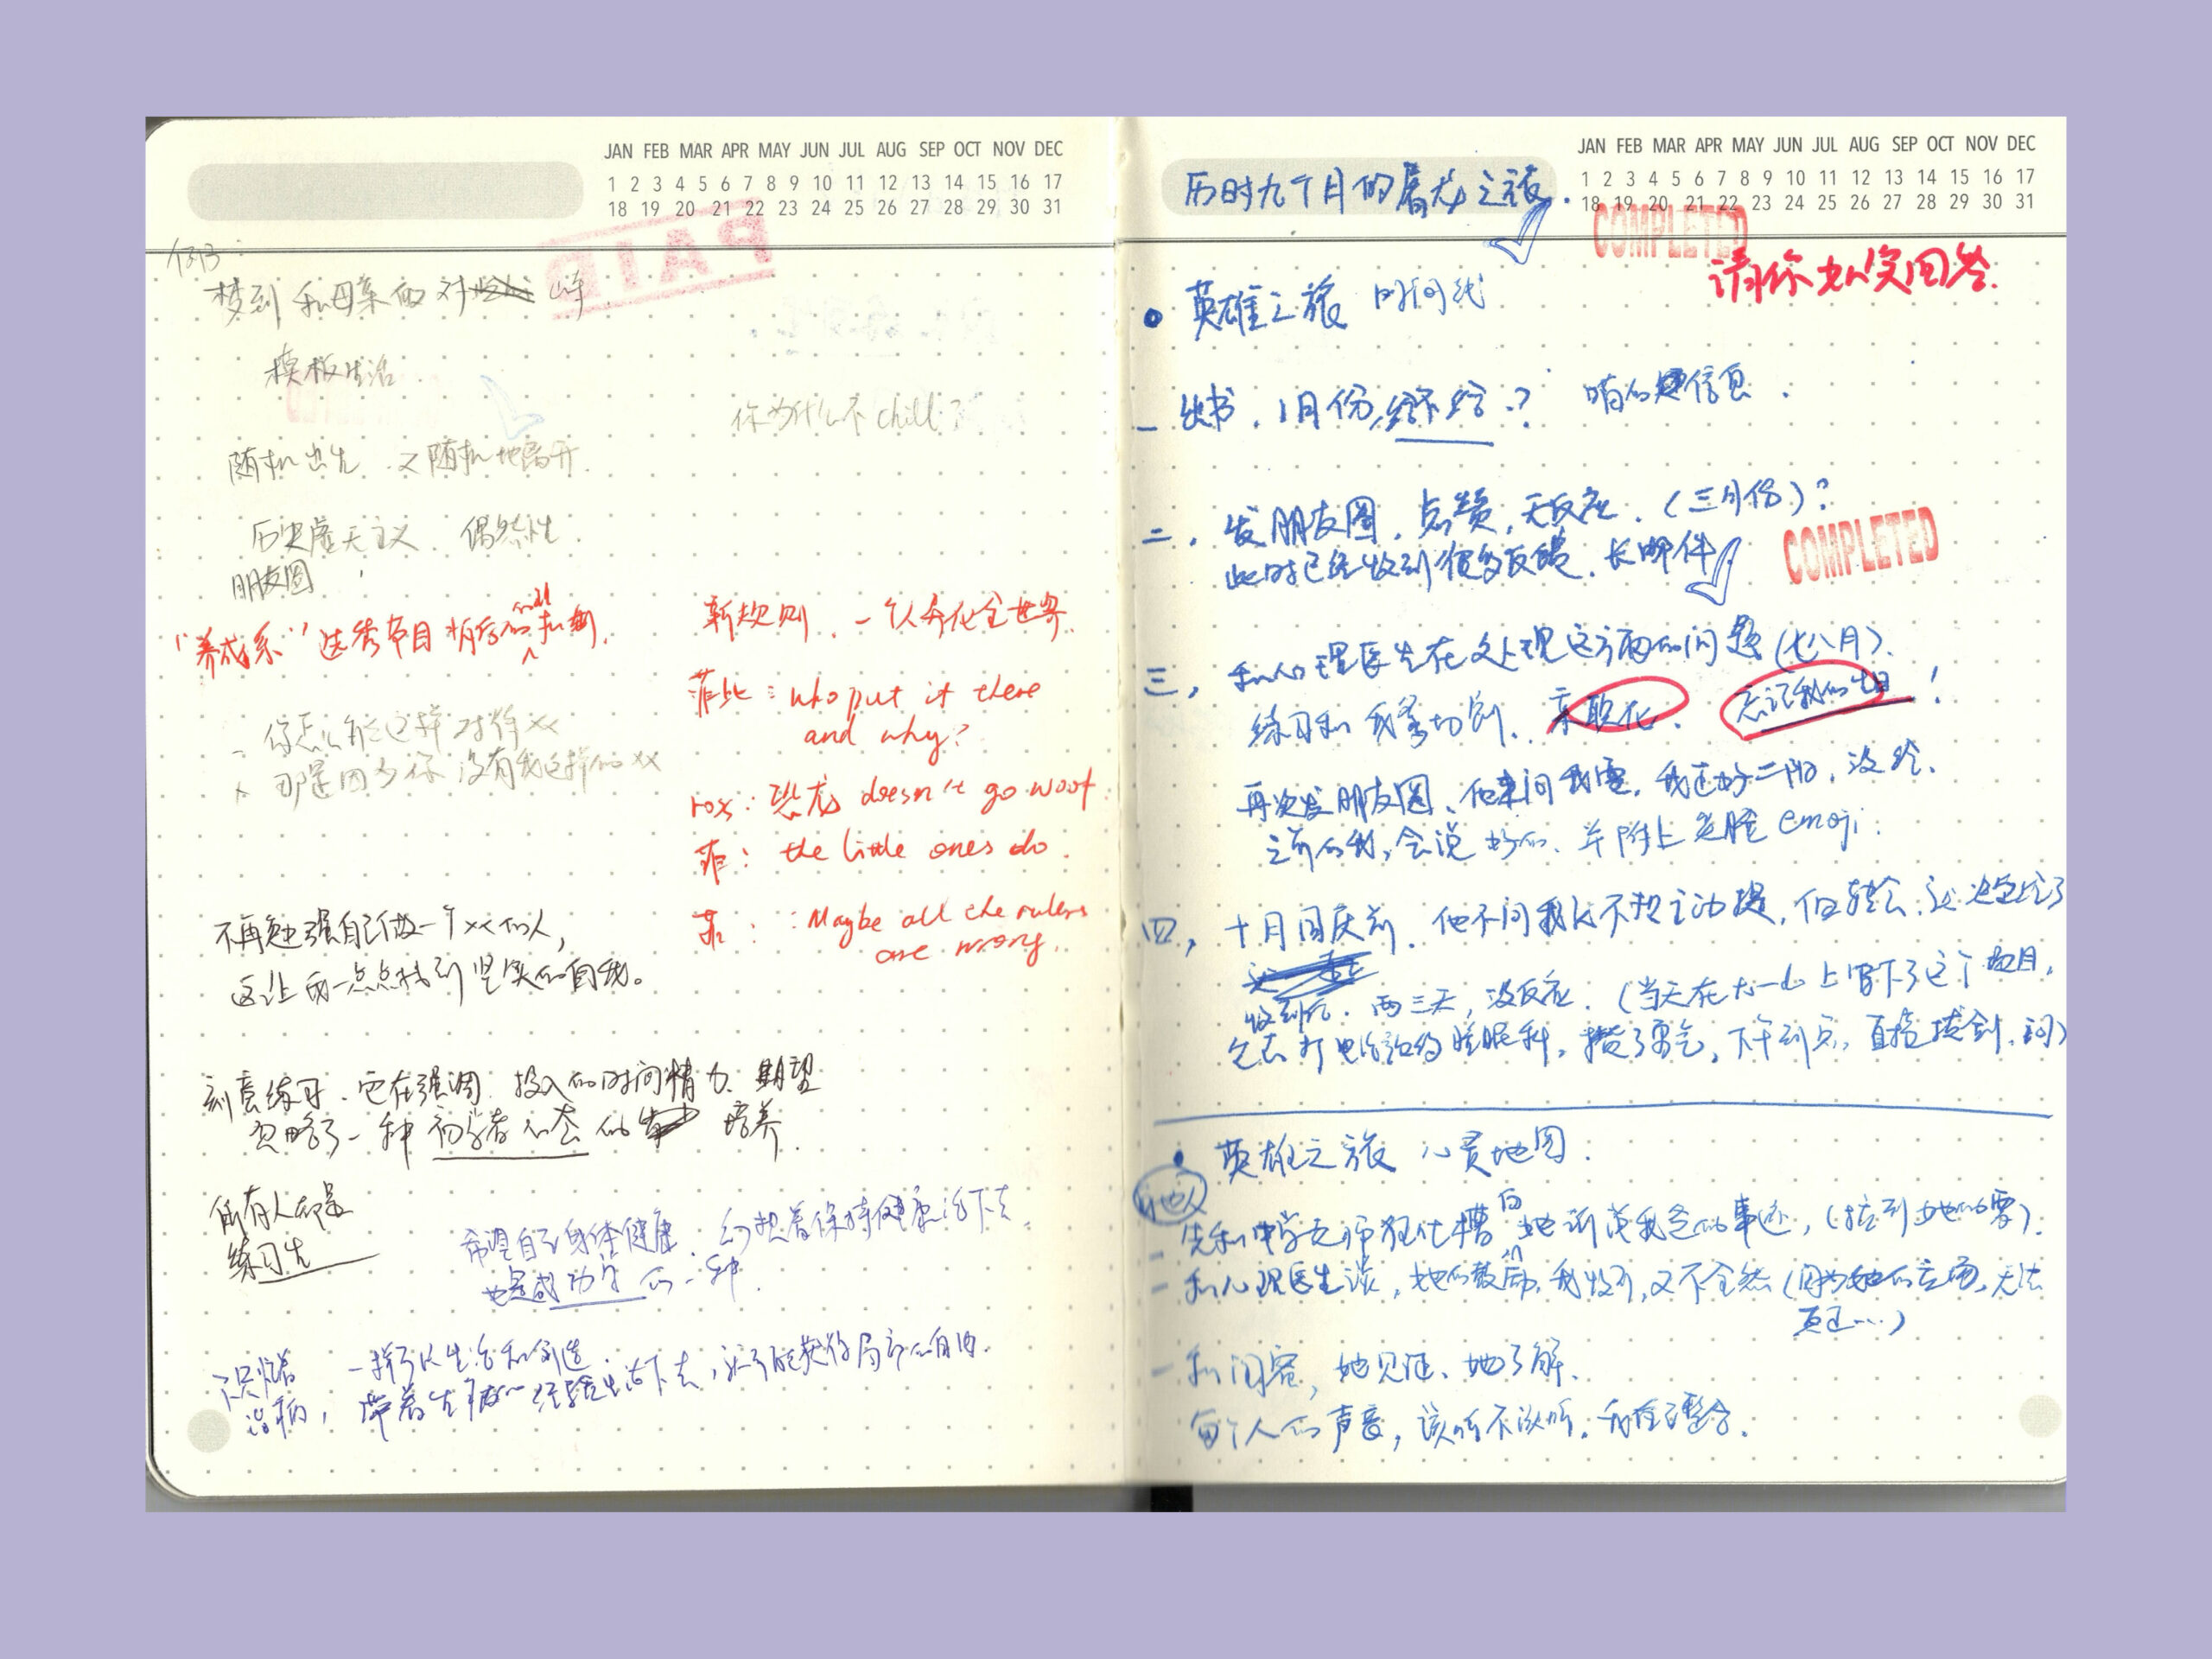 JAN FEB MAR APR MAY JUN JUL AUG SEP OCT NOV DEC
1 2 3 4 5 6 7 8 9 10 11 12 13 14 15 16 17
18 19 20 21 22 23 24 25 26 27 28 29 30 31
PAID
梦到和母亲的对峙
模板生活
你为什么不chill?
随机出生.又随机地离开.
历史虚无主义 偶然性
朋友圈
"养成系"选秀节目
- 你怎么能这样对待xx
x 那是因为你没有我这样的xx
新规则.一个人养化全世界.
菲比:who put it there
and why?
rox:恐龙doesn't go woof.
菲:the little ones do.
菲:Maybe all the rulers
are wrong.
不再勉强自己做一个xx的人,
这让我一点点找到坚实的自我。
刻意练习.它在强调.投入的时间精力.期望
忽略了一种初学者心态的培养.
所有人都是
练习生
希望自己身体健康.幻想着保持健康活下去.
也是成功学的一种.
带着生活下去,
JAN FEB MAR APR MAY JUN JUL AUG SEP OCT NOV DEC
1 2 3 4 5 6 7 8 9 10 11 12 13 14 15 16 17
18 19 20 21 22 23 24 25 26 27 28 29 30 31
历时九个月的屠龙之旅.
COMPLETED
请你如实回答.
• 英雄之旅 时间线
一 出书.1月份,给不给.? 信息.
二.发朋友圈.点赞,无反应.(三月份)?
此时已经收到很多反馈.长邮件
COMPLETED
三,和心理医生在处理这方面的问题(七八月).
练习和我爹切割. 亲职化. 忘记我的生日!
再次发朋友圈、他来问我要,我还好二阶,没给.
之前的我,会说好的.并附上笑脸emoji.
四,十月国庆前.他不问我从不想主动提,但转念,还是给了
收到后.两三天,没反应.(当天在大一心上写下了这个题目,
打电话约睡眠科,攒了勇气,下午到点,直接拔剑.问)
• 英雄之旅 心灵地图:
和他人
- 先和中学老师狂吐槽 向她诉说我爸的事迹,
- 和心理医生谈,她的鼓励,我收下,又不全然(因为她的立场,无法
真正…)
- 和闺蜜,她见证、她了解.
每个人的声音,该听不该听.我在整合.